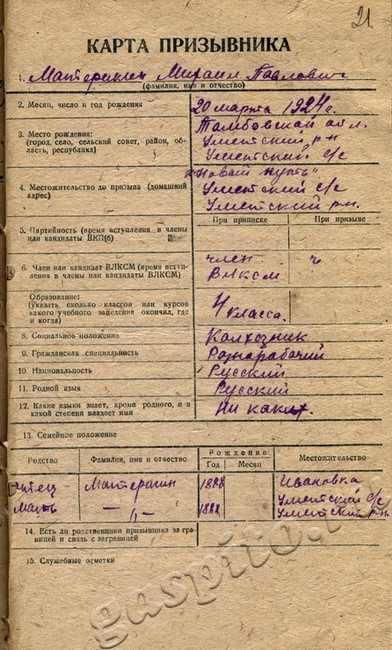 21
КАРТА ПРИЗЫВНИКА
1. Материкин Михаил Павлович
(фамилия, имя и отчество)
2. Месяц, число и год рождения 20 марта 1924 г.
3. Место рождения: Тамбовской обл.
(город, село, сельский совет, район, область, республика) Уметский р-н
Уметский с/с
"Новый путь"
4. Местожительство до призыва (домашний адрес) Уметский с/с
Уметский р-н.
При приписке При призыве
5. Партийность (время вступления в члены или кандидаты ВКП(б)
6. Член или кандидат ВЛКСМ (время вступления в члены или кандидаты ВЛКСМ) член ч
ВЛКСМ
7. Образование:
(указать сколько классов или курсов какого учебного заведения окончил, где и когда) 4 класса.
8. Социальное положение Колхозник
9. Гражданская специальность Разнорабочий
10. Национальность Русский
11. Родной язык Русский
12. Какие языки знает, кроме родного, и в какой степени владеет ими Ни каких.
13. Семейное положение
Родство Фамилия, имя и отчество Рождение Местожительство
Год Месяц
отец 1888 Ивановка
Мать —„— 1888 Уметский с/с
Уметский р-н
14. Есть ли родственники призывника за границей и связь с заграницей
15. Служебные отметки